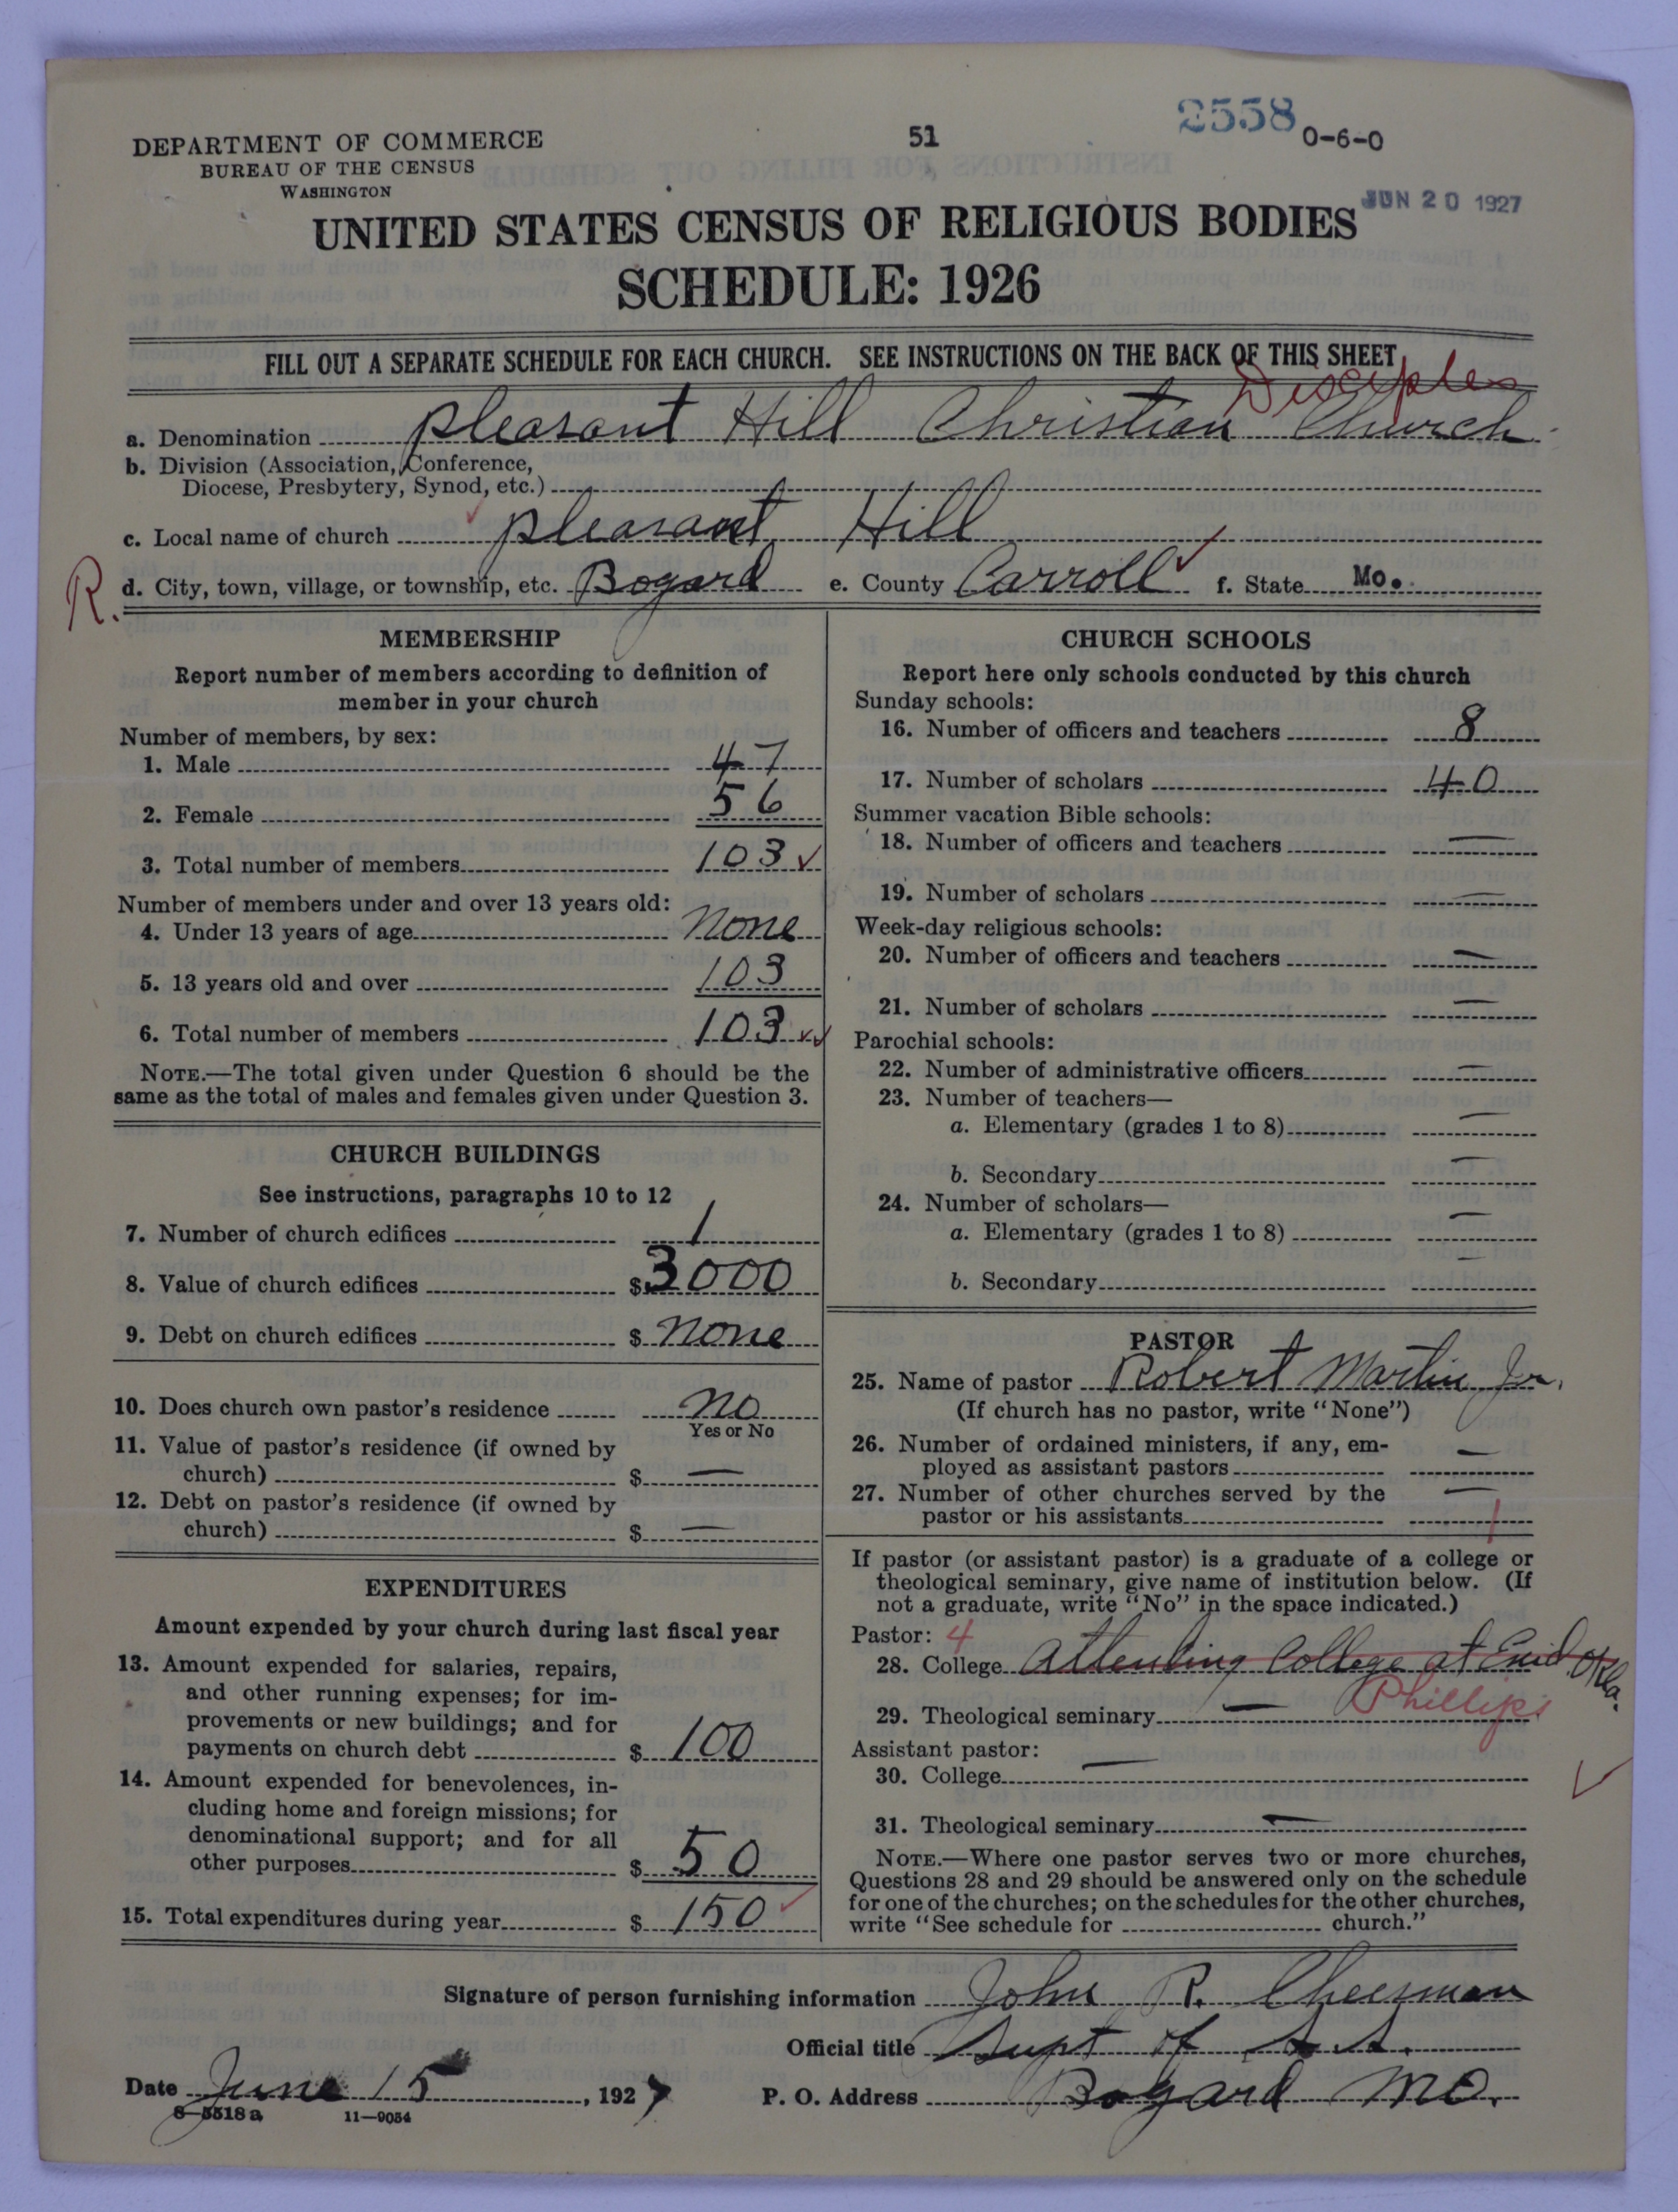 2558
51
0-6-0
DEPARTMENT OF COMMERCE
BUREAU OF THE CENSUS
WASHINGTON
JUN 20 1927
UNITED STATES CENSUS OF RELIGIOUS BODIES
SCHEDULE: 1926
FILL OUT A SEPARATE SCHEDULE FOR EACH CHURCH. SEE INSTRUCTIONS ON THE BACK OF THIS SHEET
Disciples
a. Denomination Pleasant Hill Christian Church
b. Division (Association, Conference,
Diocese, Presbytery, Synod, etc.)
c. Local name of church Pleasant Hill
R. d. City, town, village, or township, etc. Bogard e. County Carroll f. State Mo.
MEMBERSHIP
Report number of members according to definition of
member in your church
Number of members, by sex:
1. Male 47
2. Female 56
3. Total number of members 103
Number of members under and over 13 years old:
4. Under 13 years of age None
5. 13 years old and over 103
6. Total number of members 103
NOTE.—The total given under Question 6 should be the
same as the total of males and females given under Question 3.
CHURCH BUILDINGS
See instructions, paragraphs 10 to 12
7. Number of church edifices 1
8. Value of church edifices $3000
9. Debt on church edifices $ None
10. Does church own pastor's residence No
Yes or No
11. Value of pastor's residence (if owned by
church) $ —
12. Debt on pastor's residence (if owned by
church) $ —
EXPENDITURES
Amount expended by your church during last fiscal year
13. Amount expended for salaries, repairs,
and other running expenses; for im-
provements or new buildings; and for
payments on church debt $ 100
14. Amount expended for benevolences, in-
cluding home and foreign missions; for
denominational support; and for all
other purposes $ 50
15. Total expenditures during year $ 150
CHURCH SCHOOLS
Report here only schools conducted by this church
Sunday schools:
16. Number of officers and teachers 8
17. Number of scholars 40
Summer vacation Bible schools:
18. Number of officers and teachers —
19. Number of scholars —
Week-day religious schools:
20. Number of officers and teachers —
21. Number of scholars —
Parochial schools:
22. Number of administrative officers —
23. Number of teachers—
a. Elementary (grades 1 to 8) —
b. Secondary —
24. Number of scholars—
a. Elementary (grades 1 to 8) —
b. Secondary —
PASTOR
25. Name of pastor Robert Martin Jr.
(If church has no pastor, write "None")
26. Number of ordained ministers, if any, em-
ployed as assistant pastors —
27. Number of other churches served by the
pastor or his assistants — 1
If pastor (or assistant pastor) is a graduate of a college or
theological seminary, give name of institution below. (If
not a graduate, write "No" in the space indicated.)
Pastor: 4
28. College Attending College at Enid Okla.
Phillips
29. Theological seminary —
Assistant pastor:
30. College —
31. Theological seminary —
NOTE.—Where one pastor serves two or more churches,
Questions 28 and 29 should be answered only on the schedule
for one of the churches; on the schedules for the other churches,
write "See schedule for church."
Signature of person furnishing information John R. Cheesman
Official title Supt of S.S.
Date June 15, 1927 P. O. Address Bogard Mo.
8-5518a 11-9054